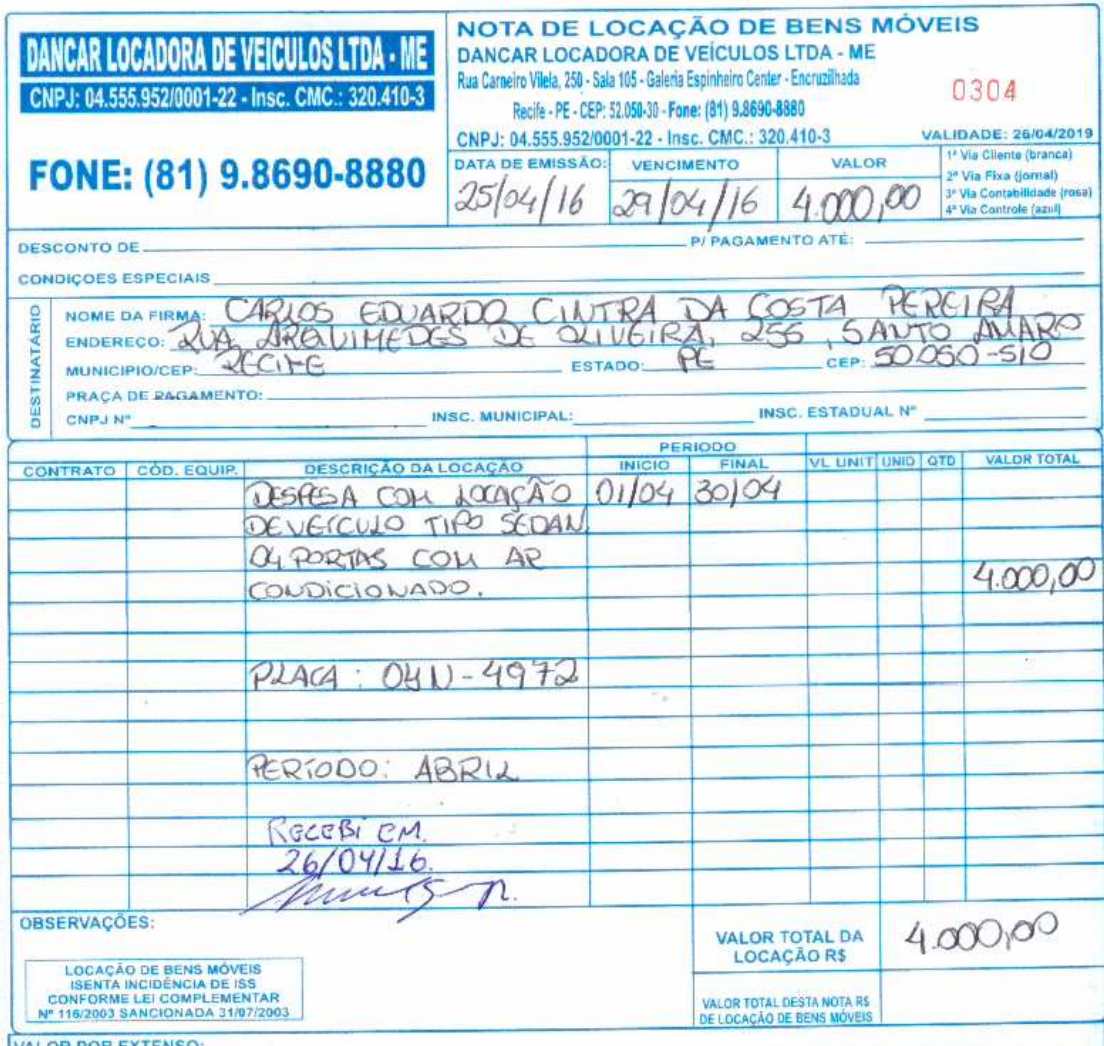 DANCAR LOCADORA DE VEICULOS LTDA - ME
CNPJ: 04.555.952/0001-22 - Insc. CMC.: 320.410-3
FONE: (81) 9.8690-8880
NOTA DE LOCAÇÃO DE BENS MÓVEIS
DANCAR LOCADORA DE VEÍCULOS LTDA - ME
Rua Carneiro Vilela, 250 - Sala 105 - Galeria Espinheiro Center - Encruzilhada
Recife - PE - CEP: 52.050-30 - Fone: (81) 9.8690-8880
0304
CNPJ: 04.555.952/0001-22 - Insc. CMC.: 320.410-3
VALIDADE: 26/04/2019
DATA DE EMISSÃO: VENCIMENTO VALOR
25/04/16 29/04/16 4.000,00
1ª Via Cliente (branca)
2ª Via Fixa (jornal)
3ª Via Contabilidade (rosa)
4ª Via Controle (azul)
DESCONTO DE P/ PAGAMENTO ATÉ:
CONDIÇOES ESPECIAIS
DESTINATÁRIO
NOME DA FIRMA: CARLOS EDUARDO CINTRA DA COSTA PEREIRA
ENDEREÇO: RUA ARQUIMEDES DE OLIVEIRA, 256, SANTO AMARO
MUNICIPIO/CEP: RECIFE ESTADO: PE CEP: 50.050-510
PRAÇA DE PAGAMENTO:
CNPJ Nº INSC. MUNICIPAL: INSC. ESTADUAL Nº
PERIODO
CONTRATO CÓD. EQUIP. DESCRIÇÃO DA LOCAÇÃO INICIO FINAL VL UNIT UNID QTD VALOR TOTAL
DESPESA COM LOCAÇÃO 01/04 30/04
DE VEÍCULO TIPO SEDAN
04 PORTAS COM AR
CONDICIONADO. 4.000,00
PLACA: OYN-4972
PERÍODO: ABRIL
RECEBI EM.
26/04/16.
OBSERVAÇÕES:
LOCAÇÃO DE BENS MÓVEIS
ISENTA INCIDÊNCIA DE ISS
CONFORME LEI COMPLEMENTAR
Nº 116/2003 SANCIONADA 31/07/2003
VALOR TOTAL DA
LOCAÇÃO R$ 4.000,00
VALOR TOTAL DESTA NOTA R$
DE LOCAÇÃO DE BENS MÓVEIS
VALOR POR EXTENSO: